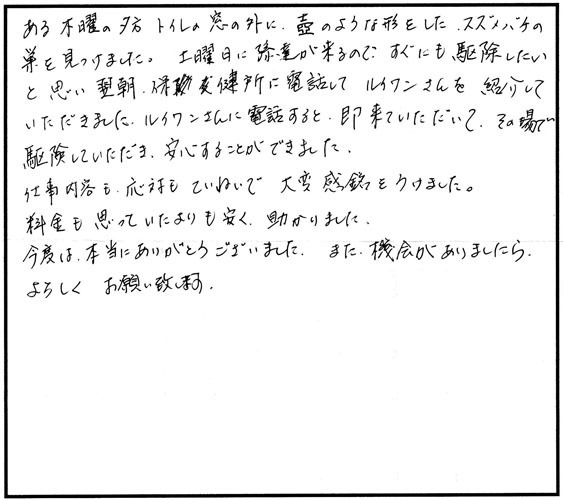 ある木曜の夕方 トイレの窓の外に、壺のような形をした、スズメバチの
巣を見つけました。 土曜日に孫達が来るので、すぐにも駆除したい
と思い 翌朝、保健所に電話して ルイワンさんを 紹介して
いただきました、ルイワンさんに電話すると、即来ていただいて、その場で
駆除していただき、安心することができました、
仕事内容も、応対も ていねいで 大変感銘をうけました。
料金も思っていたよりも安く、助かりました、
今度は、本当にありがとうございました、 また、機会がありましたら、
よろしく お願い致します、